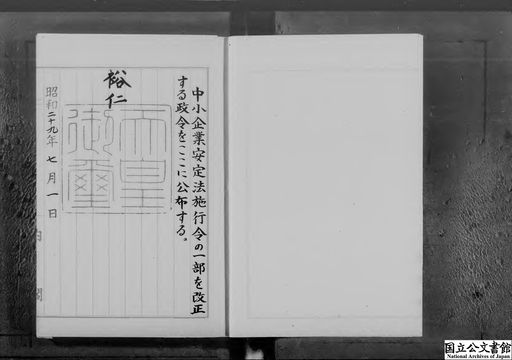 中小企業安定法施行令の一部を改正
する政令をここに公布する。
裕仁
天皇
御璽
昭和二十九年七月一日
内 閣
国立公文書館
National Archives of Japan